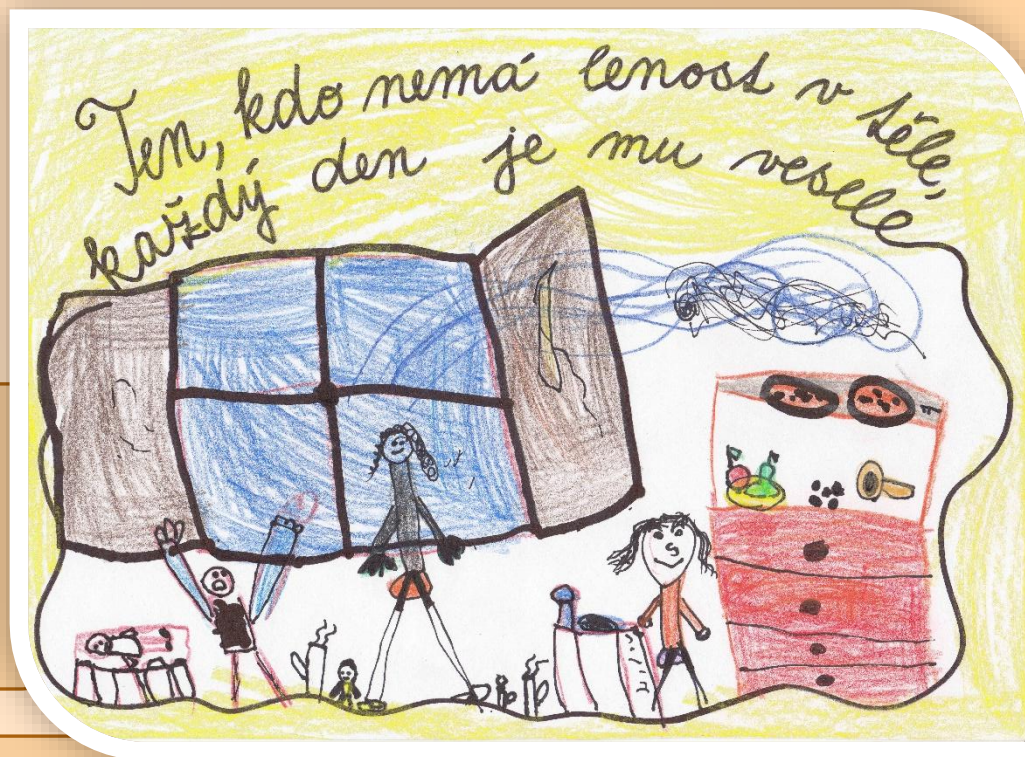 Ten, kdo nemá lenost v těle,
každý den je mu veselé